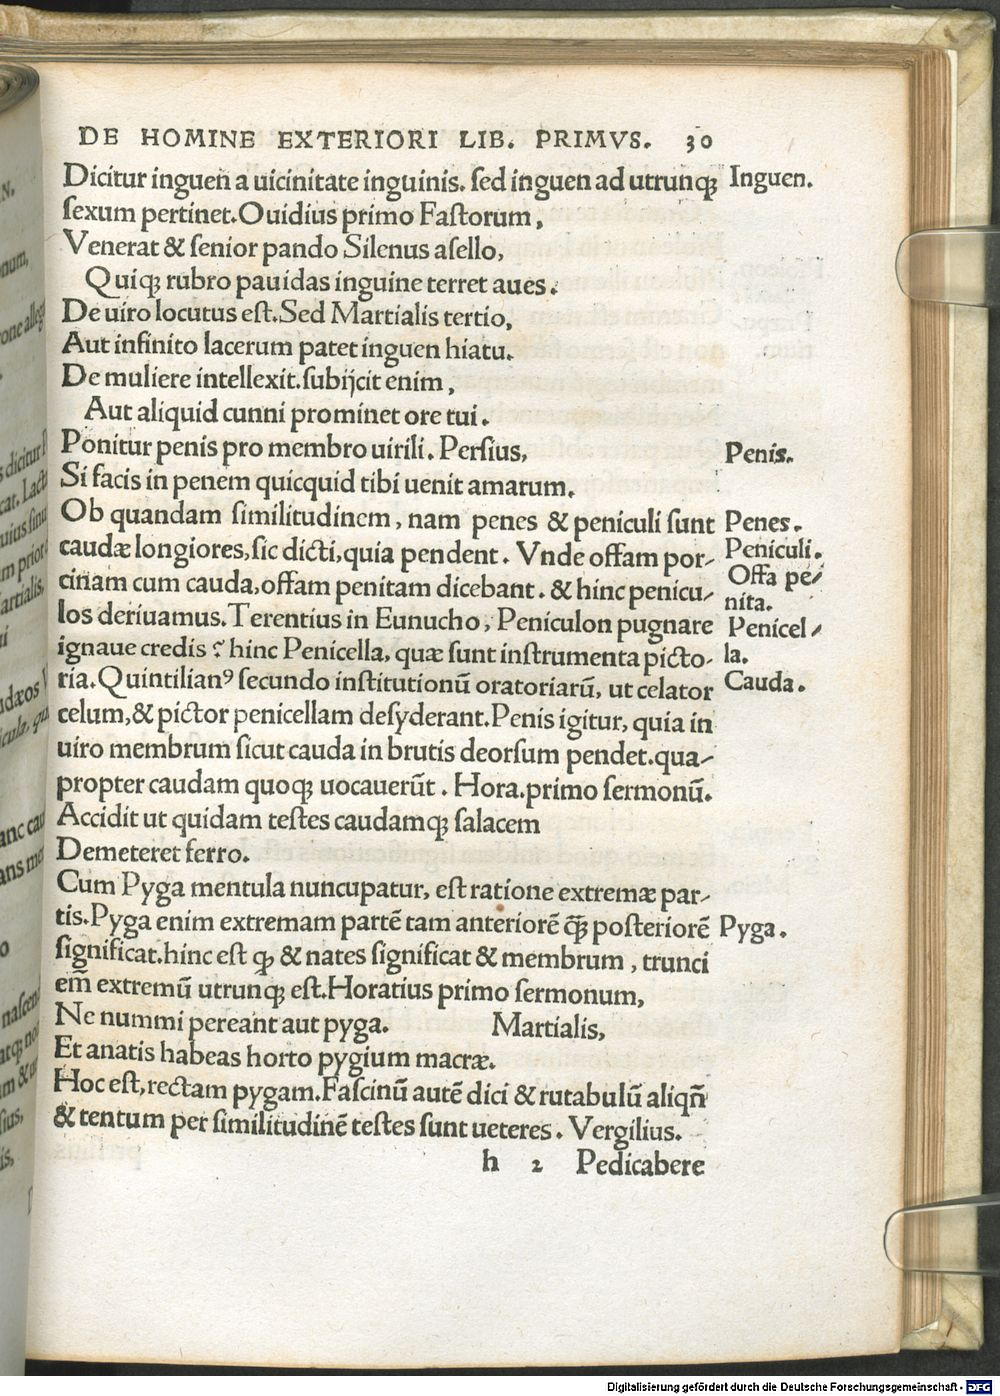 DE HOMINE EXTERIORI LIB. PRIMVS. 30
Dicitur inguen a uicinitate inguinis. sed inguen ad utrunq; Inguen.
sexum pertinet. Ouidius primo Fastorum,
Venerat & senior pando Silenus asello,
Quiq; rubro pauidas inguine terret aues.
De uiro locutus est. Sed Martialis tertio,
Aut infinito lacerum patet inguen hiatu.
De muliere intellexit. subijcit enim,
Aut aliquid cunni prominet ore tui.
Ponitur penis pro membro uirili. Persius, Penis.
Si facis in penem quicquid tibi uenit amarum.
Ob quandam similitudinem, nam penes & peniculi sunt Penes.
caudæ longiores, sic dicti, quia pendent. Vnde offam por- Peniculi.
cinam cum cauda, offam penitam dicebant. & hinc penicu- Offa pe-
los deriuamus. Terentius in Eunucho, Peniculon pugnare nita.
ignaue credis? hinc Penicella, quæ sunt instrumenta picto- Penicel-
ria. Quintilianꝰ secundo institutionū oratoriarū, ut celator la.
celum, & pictor penicellam desyderant. Penis igitur, quia in Cauda.
uiro membrum sicut cauda in brutis deorsum pendet. qua-
propter caudam quoq; uocauerūt. Hora. primo sermonū.
Accidit ut quidam testes caudamq; salacem
Demeteret ferro.
Cum Pyga mentula nuncupatur, est ratione extremæ par-
tis. Pyga enim extremam partē tam anteriorē q̄; posteriorē Pyga.
significat. hinc est ꝙ & nates significat & membrum, trunci
em̄ extremū utrunq; est. Horatius primo sermonum,
Ne nummi pereant aut pyga. Martialis,
Et anatis habeas horto pygium macræ.
Hoc est, rectam pygam. Fascinū autē dici & rutabulū aliqn̄
& tentum per similitudinē testes sunt ueteres. Vergilius.
h 2 Pedicabere
Digitalisierung gefördert durch die Deutsche Forschungsgemeinschaft - DFG